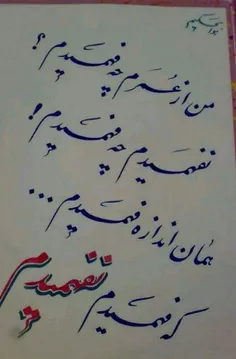 من از عمرم چه فهمیدم ؟
نفهمیدم چه فهمیدم !
همان اندازه فهمیدم ...
که فهمیدم
نفهمیدم